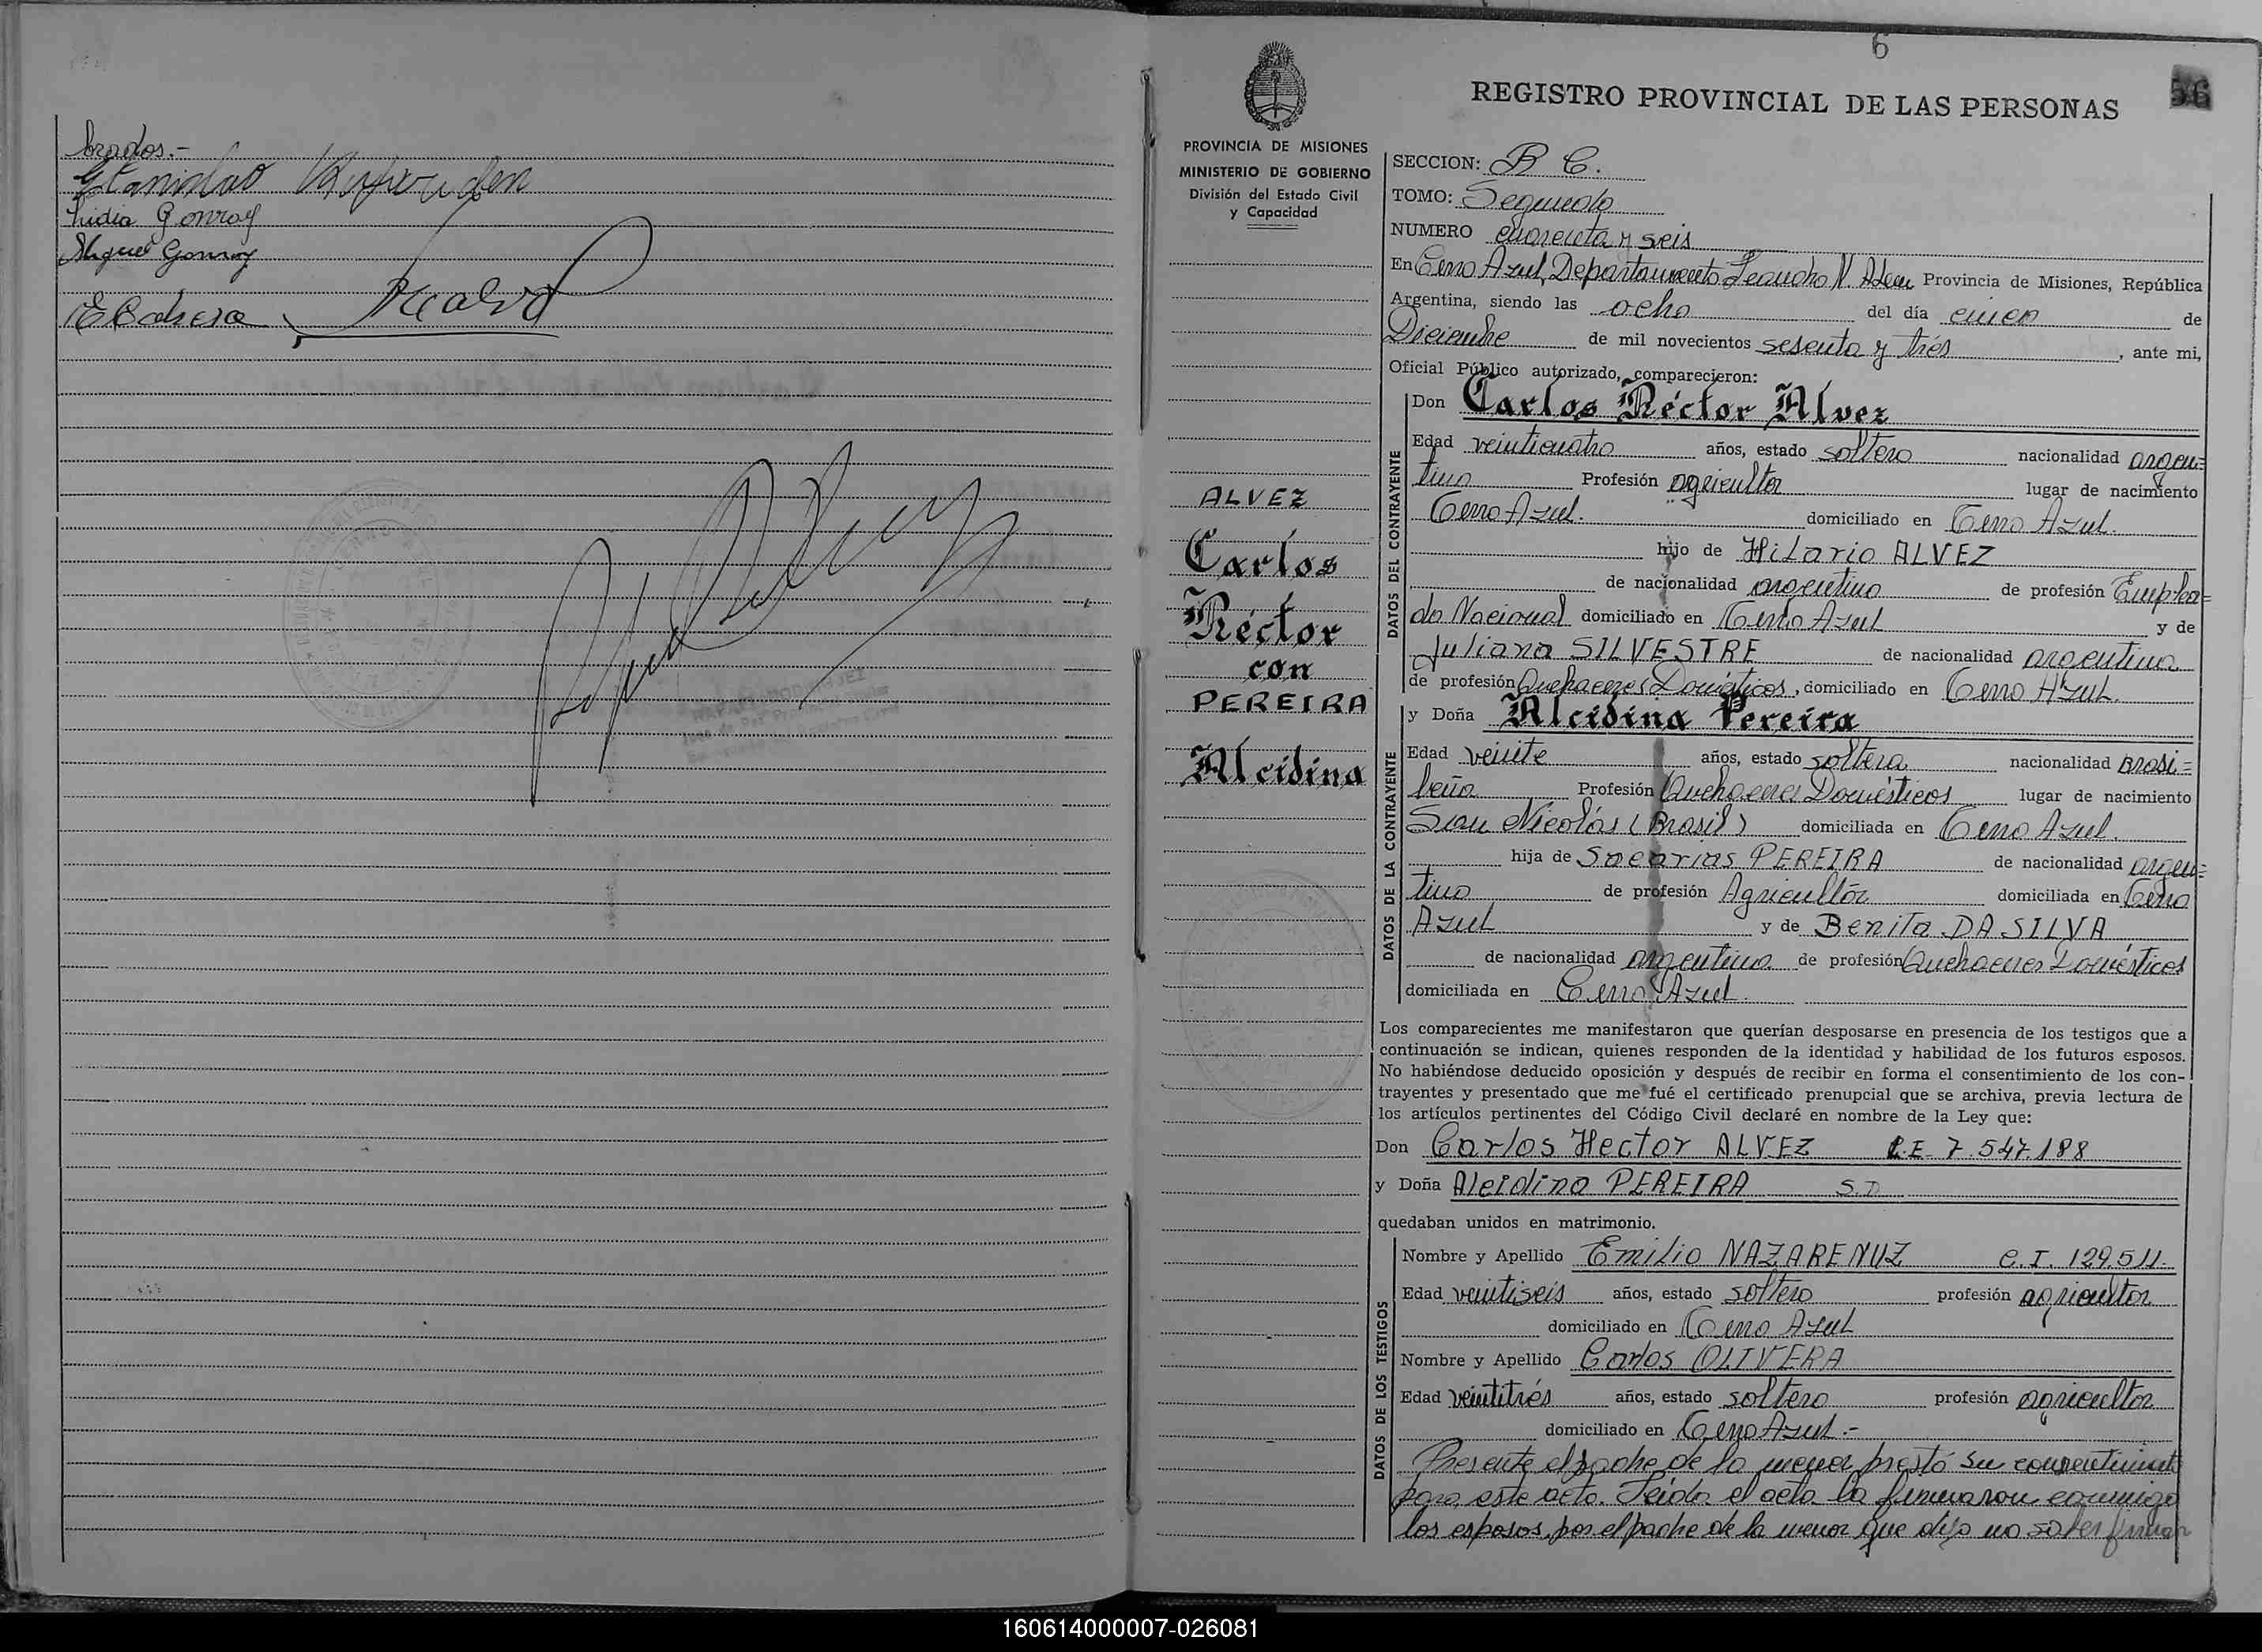 brados.-
Lidia Gonroy
Miguel Gonroy
E Cabrera
6
REGISTRO PROVINCIAL DE LAS PERSONAS
56
PROVINCIA DE MISIONES
MINISTERIO DE GOBIERNO
División del Estado Civil
y Capacidad
ALVEZ
Carlos
Héctor
con
PEREIRA
Alcidina
SECCION: B C.
TOMO: Segundo
NUMERO cuarenta y seis
En Cerro Azul, Departamento Leandro N. Alem Provincia de Misiones, República
Argentina, siendo las ocho del día cinco de
Diciembre de mil novecientos sesenta y trés, ante mi,
Oficial Público autorizado, comparecieron:
DATOS DEL CONTRAYENTE
Don Carlos Héctor Alvez
Edad veinticuatro años, estado soltero nacionalidad argen=
tino Profesión agricultor lugar de nacimiento
Cerro Azul. domiciliado en Cerro Azul.
hijo de Hilario ALVEZ
de nacionalidad argentino de profesión Emplea=
do Nacional domiciliado en Cerro Azul y de
Juliana SILVESTRE de nacionalidad argentina
de profesión Quehaceres Domésticos, domiciliado en Cerro Azul.
DATOS DE LA CONTRAYENTE
y Doña Alcidina Pereira
Edad veinte años, estado soltera nacionalidad Brasi=
leña Profesión Quehaceres Domésticos lugar de nacimiento
San Nicolás (Brasil) domiciliada en Cerro Azul.
hija de Sacarias PEREIRA de nacionalidad argen=
tino de profesión Agricultor domiciliada en Cerro
Azul y de Benita DA SILVA
de nacionalidad argentina de profesión Quehaceres Domésticos
domiciliada en Cerro Azul.
Los comparecientes me manifestaron que querían desposarse en presencia de los testigos que a
continuación se indican, quienes responden de la identidad y habilidad de los futuros esposos.
No habiéndose deducido oposición y después de recibir en forma el consentimiento de los con-
trayentes y presentado que me fué el certificado prenupcial que se archiva, previa lectura de
los artículos pertinentes del Código Civil declaré en nombre de la Ley que:
Don Carlos Hector ALVEZ L.E. 7.547.188
y Doña Alcidina PEREIRA S.D.
quedaban unidos en matrimonio.
DATOS DE LOS TESTIGOS
Nombre y Apellido Emilio NAZARENUZ C.I. 129.511.
Edad veintiseis años, estado soltero profesión agricultor
domiciliado en Cerro Azul
Nombre y Apellido Carlos OLIVERA
Edad veintitrés años, estado soltero profesión agricultor
domiciliado en Cerro Azul.-
Presente el padre de la menor prestó su consentimiento
para este acto. Leida el acta la firmaron conmigo
los esposos, por el padre de la menor que dijo no saber firmar
160614000007-026081